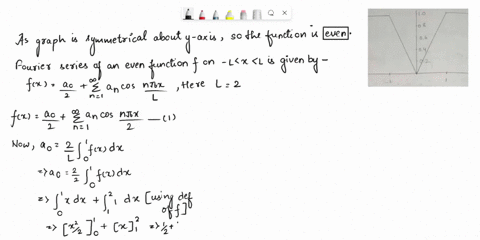 As graph is symmetrical about y-axis, so the function is even.
Fourier series of an even function f on -L<x<L is given by -
f(x) = a₀/2 + ∑_{n=1}^{∞} aₙ cos nπx/L , Here L = 2
f(x) = a₀/2 + ∑_{n=1}^{∞} aₙ cos nπx/2 — (1)
Now, a₀ = 2/L ∫₀¹ f(x) dx
⇒ a₀ = 2/2 ∫₀¹ f(x) dx
⇒ ∫₀¹ x dx + ∫₁² 1 dx [using def of f]
⇒ [x²/2]₀¹ + [x]₁² ⇒ 1/2 +